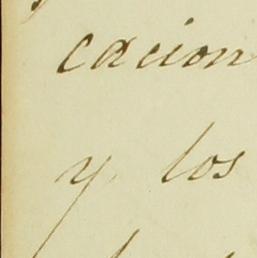 cacion
y los